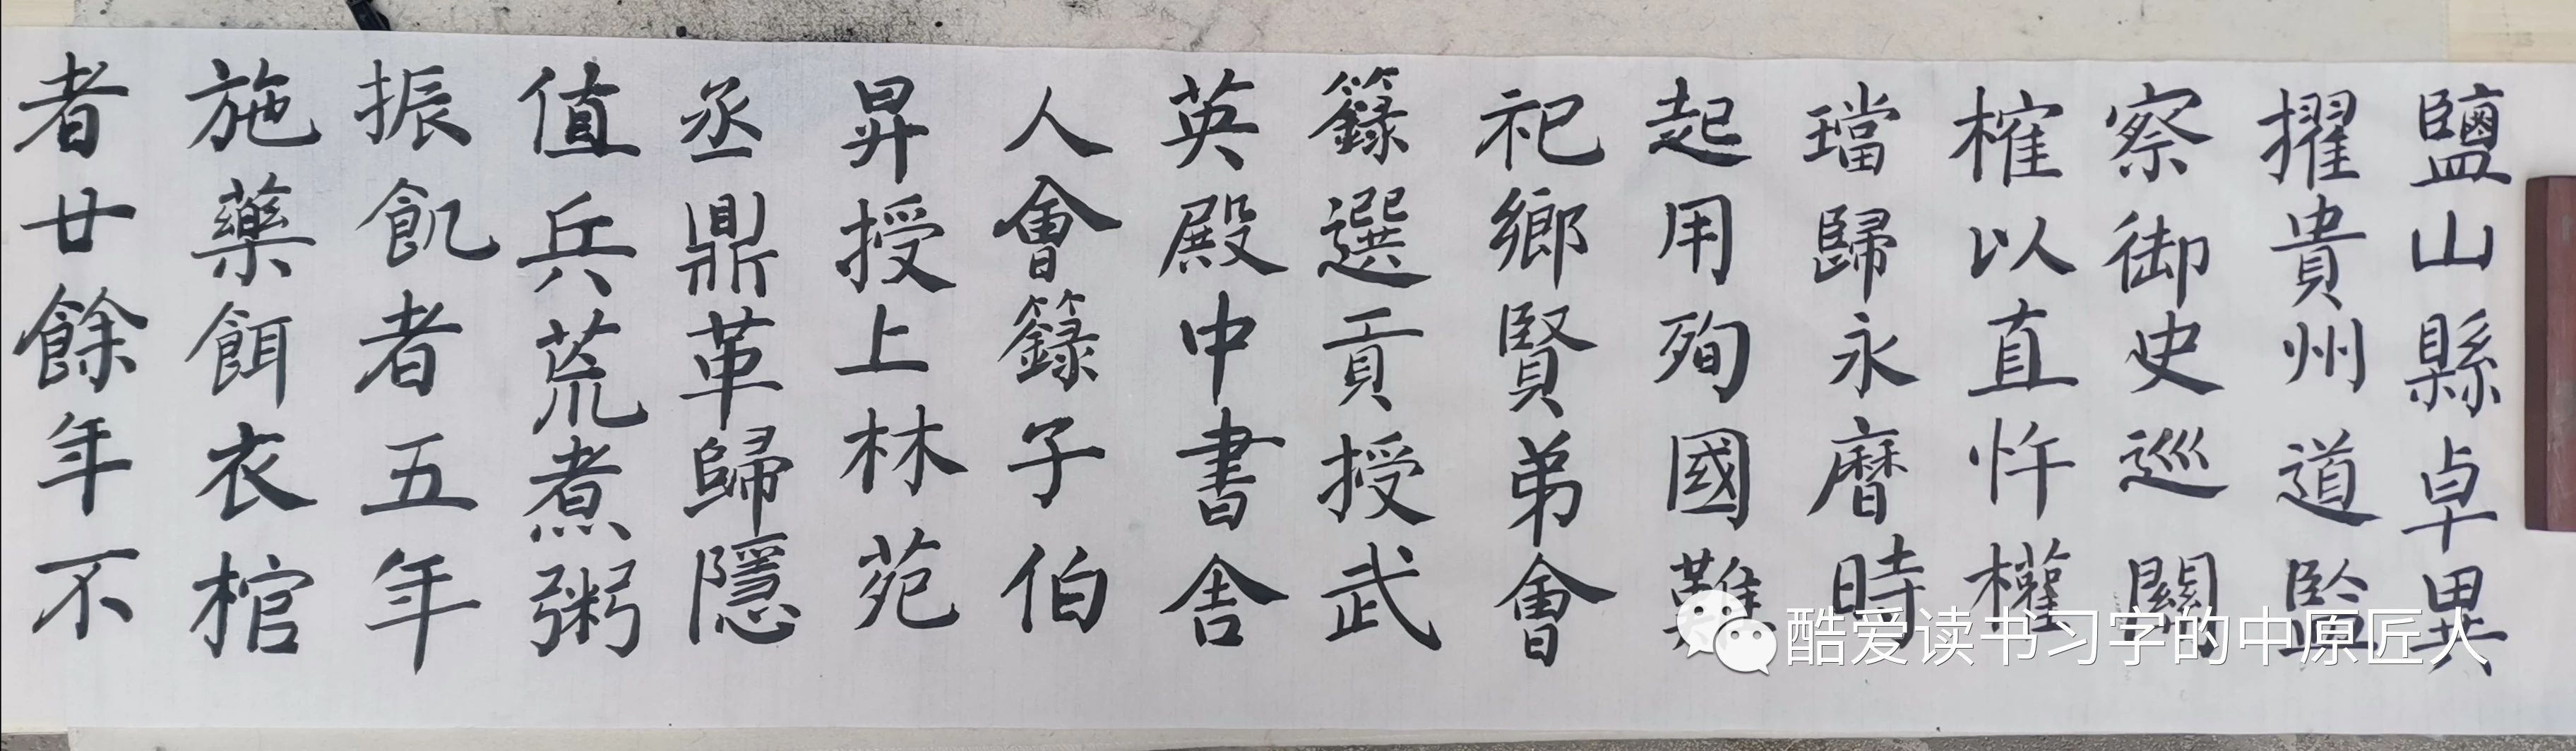 鹽山縣卓異
擢貴州道監
察御史巡關
榷以直忤權
璫歸永曆時
起用殉國難
祀鄉賢弟會
籙選貢授武
英殿中書舍
人會籙子伯
昇授上林苑
丞鼎革歸隱
值兵荒煮粥
振飢者五年
施藥餌衣棺
者廿餘年不
酷爱读书习字的中原匠人